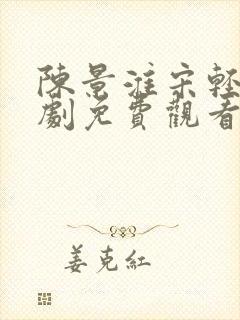 陳景淮宋輕
劇免費觀看
姜克紅